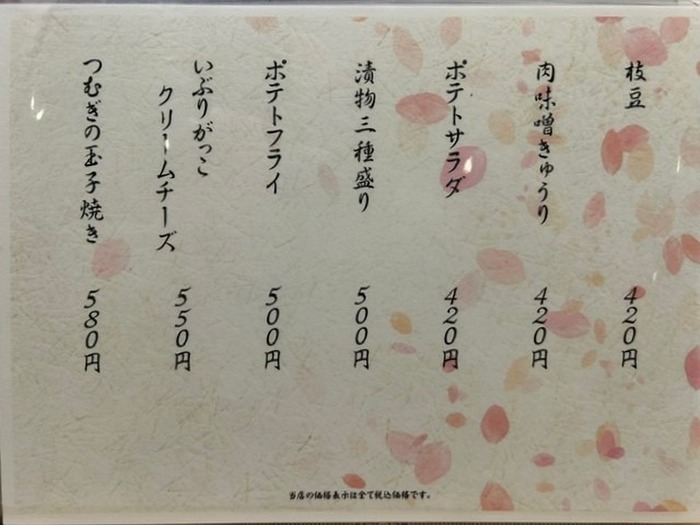 枝豆
420円
肉味噌きゅうり
420円
ポテトサラダ
420円
漬物三種盛り
500円
ポテトフライ
500円
いぶりがっこ
クリームチーズ
550円
つむぎの玉子焼き
580円
当店の価格表示は全て税込価格です。